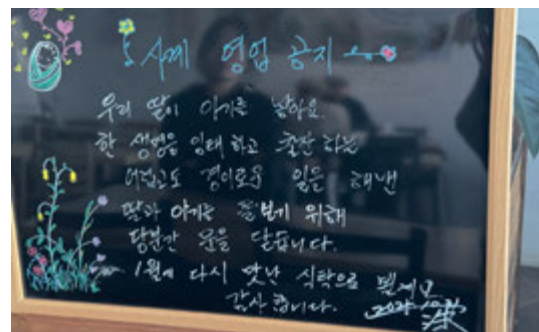 사계 영업 공지
우리 딸이 아기를 낳아요.
한 생명을 잉태하고 출산하는
어렵고도 경이로운 일을 해낸
딸과 아기를 돌보기 위해
당분간 문을 닫습니다.
1월에 다시 맛난 식탁으로 뵐게요
감사합니다.